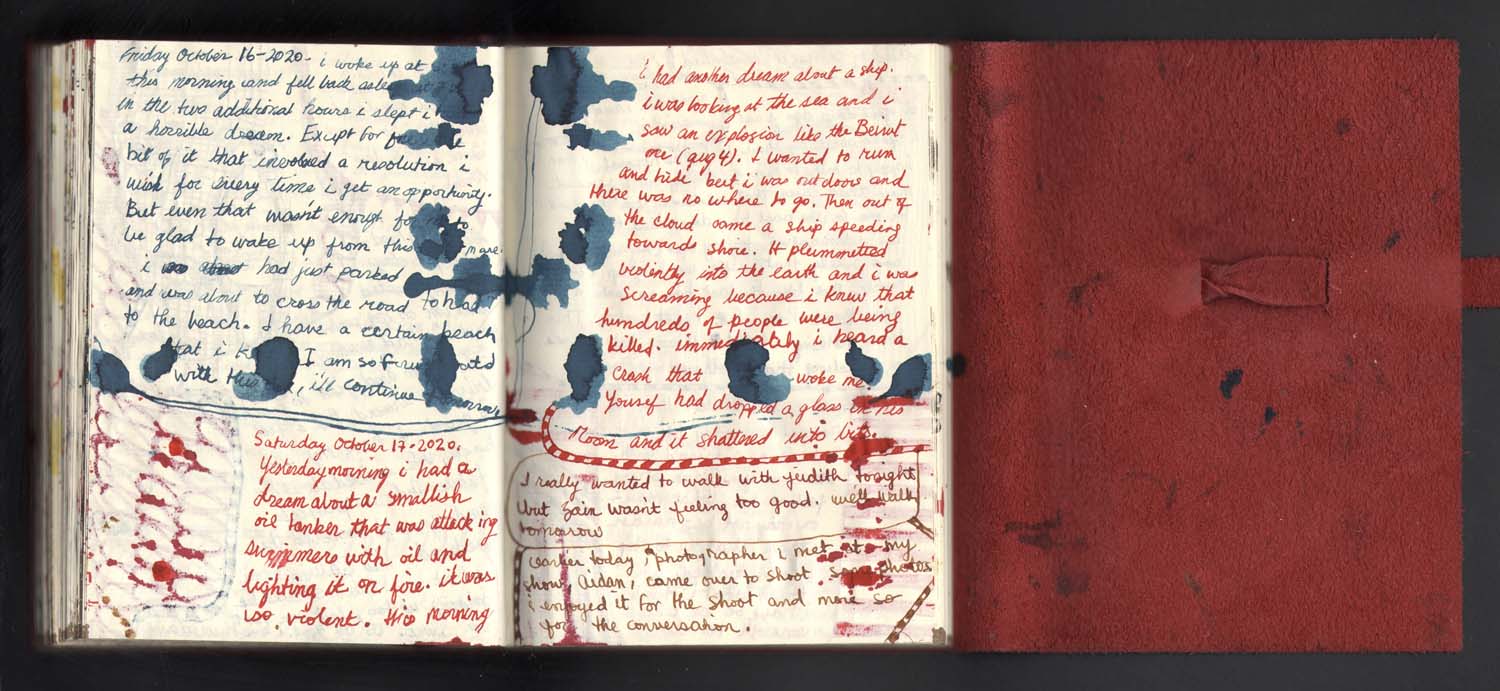 Friday October 16-2020. i woke up at
this morning and fell back asleep at
in the two additional hours i slept i
a horrible dream. Except for the
bit of it that involved a resolution i
wish for every time i get an opportunity.
But even that wasn't enough for to
be glad to wake up from this mare.
i had just parked
and was about to cross the road to head
to the beach. I have a certain beach
that i I am so
with this , i'll continue
Saturday October 17-2020.
Yesterday morning i had a
dream about a smallish
oil tanker that was attacking
swimmers with oil and
lighting it on fire. it was
so violent. this morning
i had another dream about a ship.
i was looking at the sea and i
saw an explosion like the Beirut
one (aug 4). I wanted to run
and hide but i was outdoors and
there was no where to go. Then out of
the cloud came a ship speeding
towards shore. It plummetted
violently into the earth and i was
screaming because i knew that
hundreds of people were being
killed. immediately i heard a
crash that woke me.
Yousef had dropped a glass in his
Room and it shattered into bits.
I really wanted to walk with judith tonight
but Zain wasn't feeling too good. we'll walk
tomorrow
earlier today, photographer i met at my
show, Aidan, came over to shoot some photos
i enjoyed it for the shoot and more so
for the conversation.